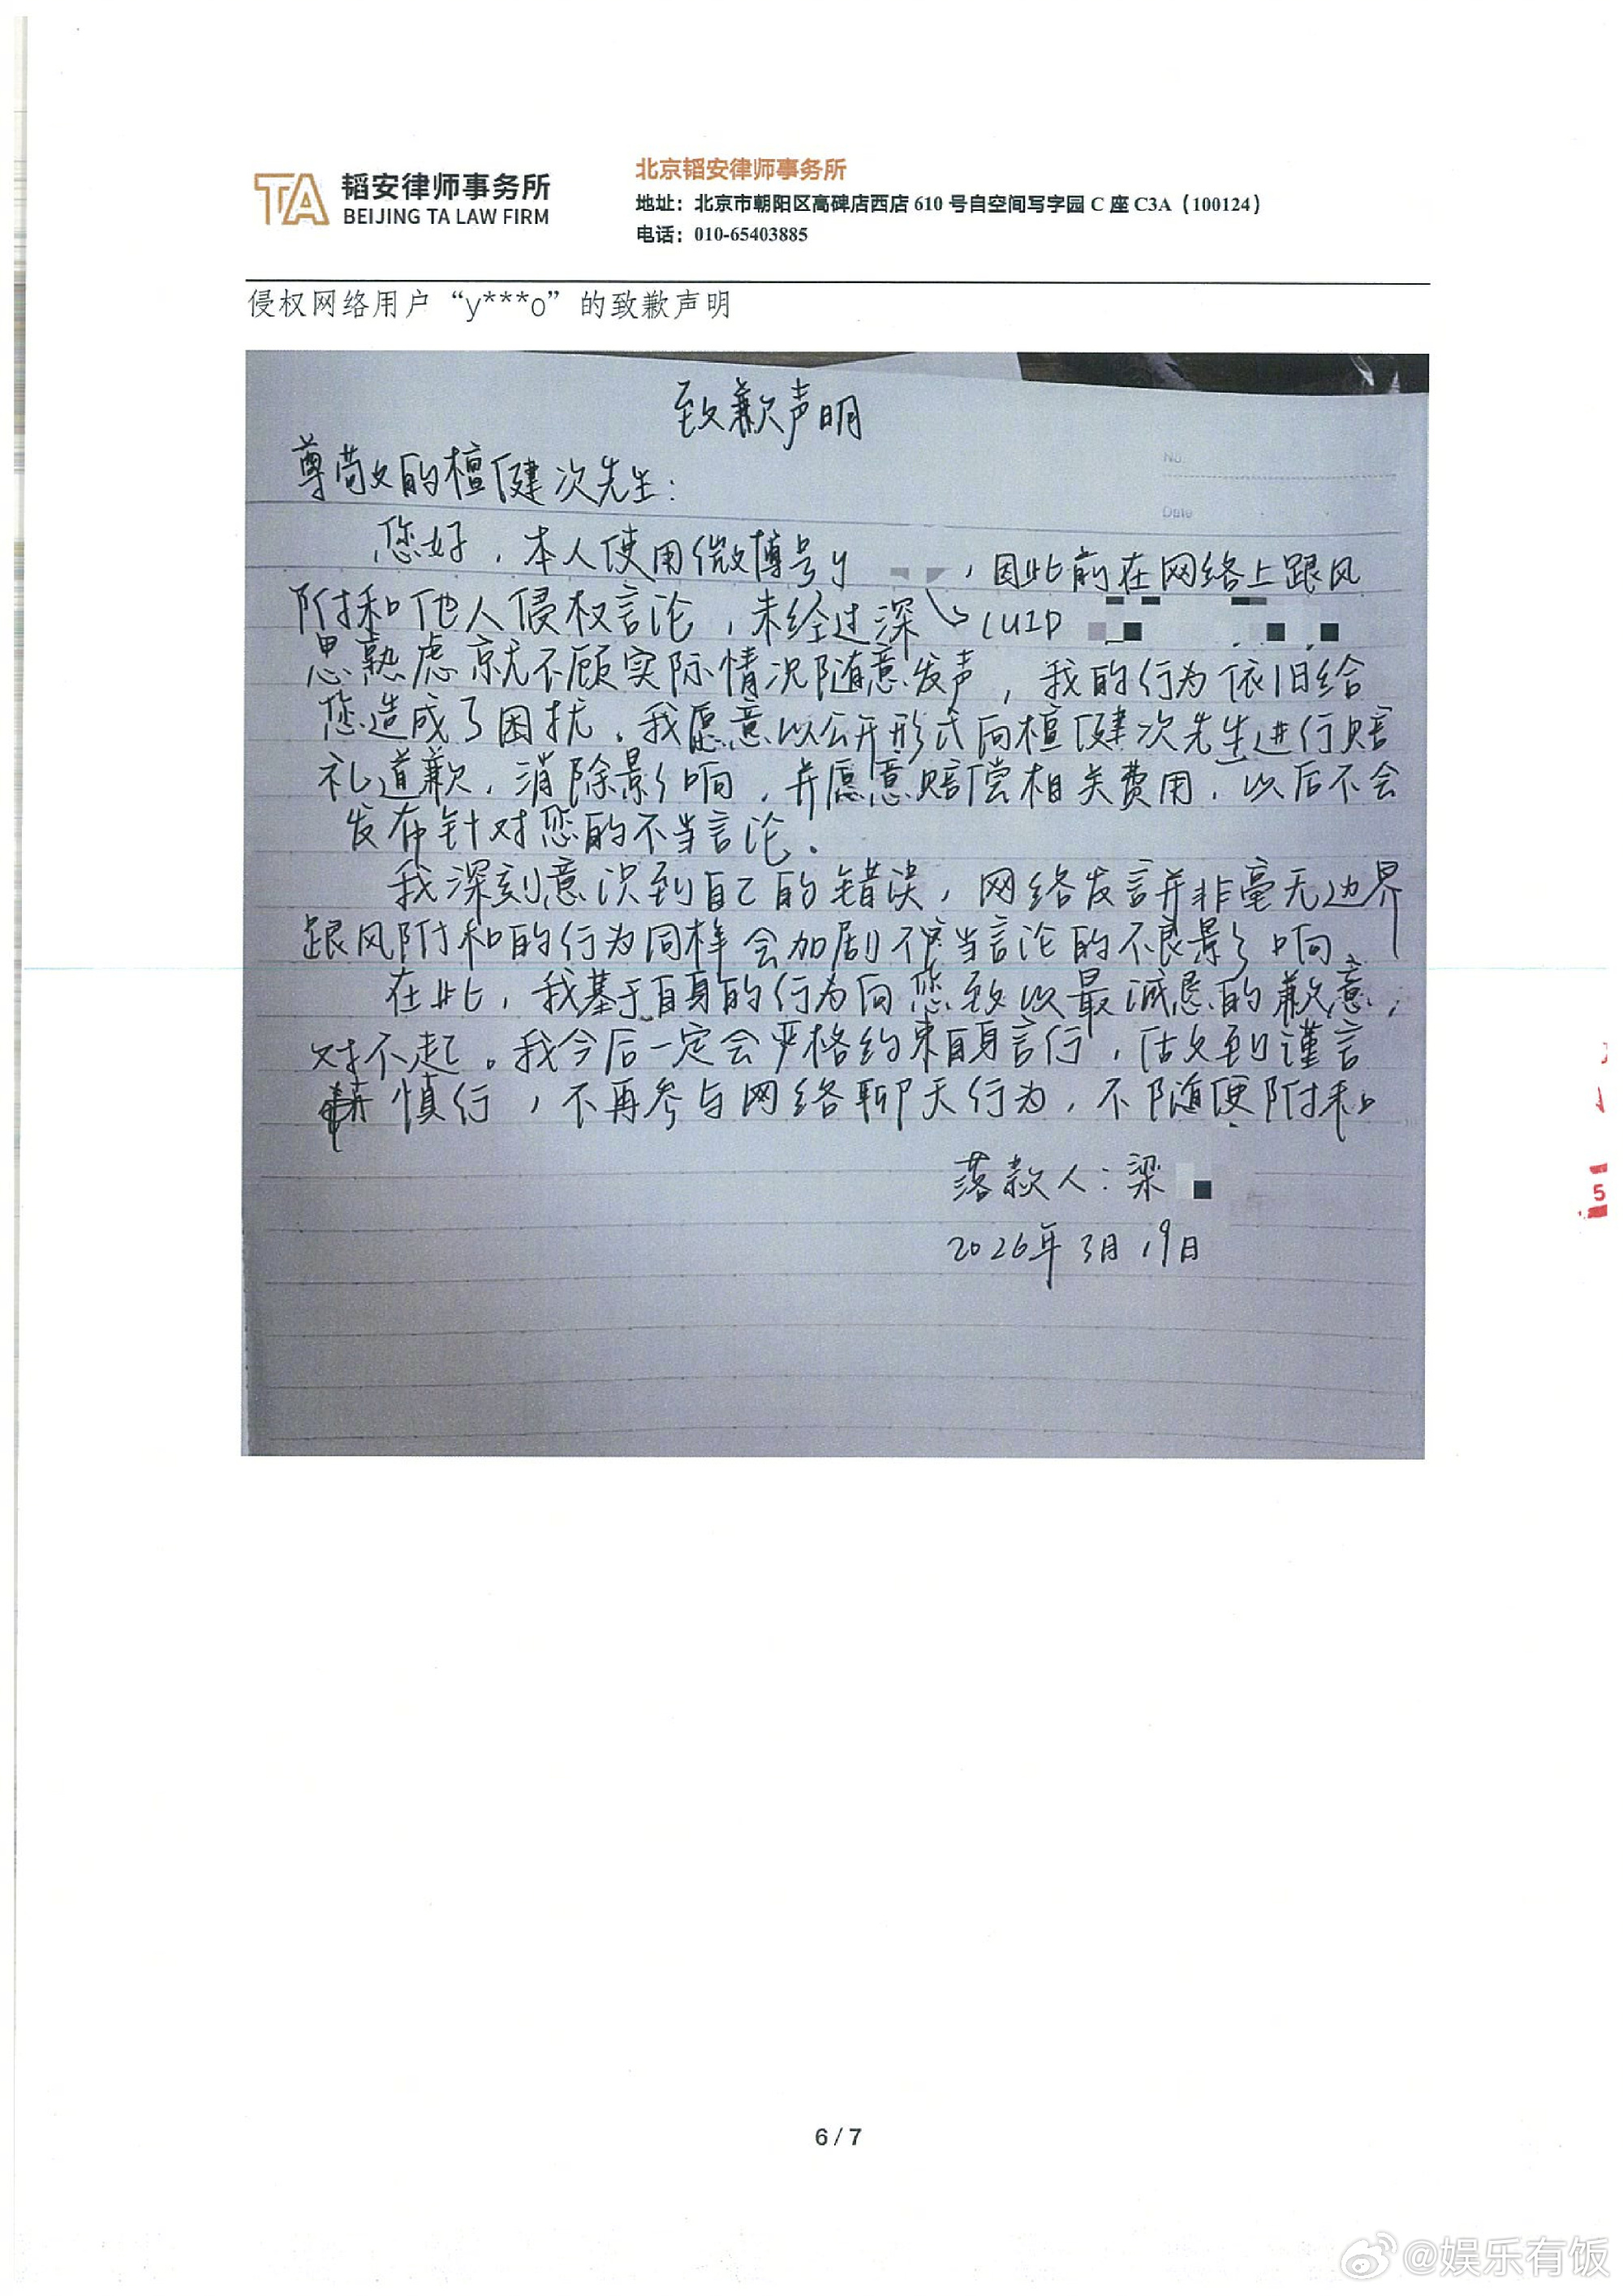 TA 韬安律师事务所
BEIJING TA LAW FIRM
北京韬安律师事务所
地址：北京市朝阳区高碑店西店 610 号自空间写字园 C 座 C3A（100124）
电话：010-65403885
侵权网络用户“y***o”的致歉声明
致歉声明
No.
Date
尊敬的檀健次先生：
您好，本人使用微博号y ，因此前在网络上跟风
附和他人侵权言论，未经过深 (UID
思熟虑就不顾实际情况随意发声，我的行为依旧给
您造成了困扰。我愿意以公开形式向檀健次先生进行赔
礼道歉，消除影响，并愿意赔偿相关费用，以后不会
发布针对您的不当言论。
我深刻意识到自己的错误，网络发言并非毫无边界
跟风附和的行为同样会加剧不当言论的不良影响。
在此，我基于自身的行为向您致以最诚恳的歉意，
对不起。我今后一定会严格约束自身言行，做到谨言
慎行，不再参与网络聊天行为，不随便附和。
落款人：梁
2026年3月19日
5
6 / 7
@娱乐有饭